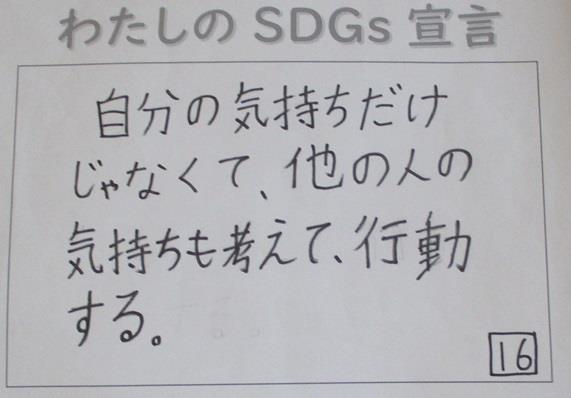 わたしの SDGs 宣言
自分の気持ちだけ
じゃなくて、他の人の
気持ちも考えて、行動
する。
16